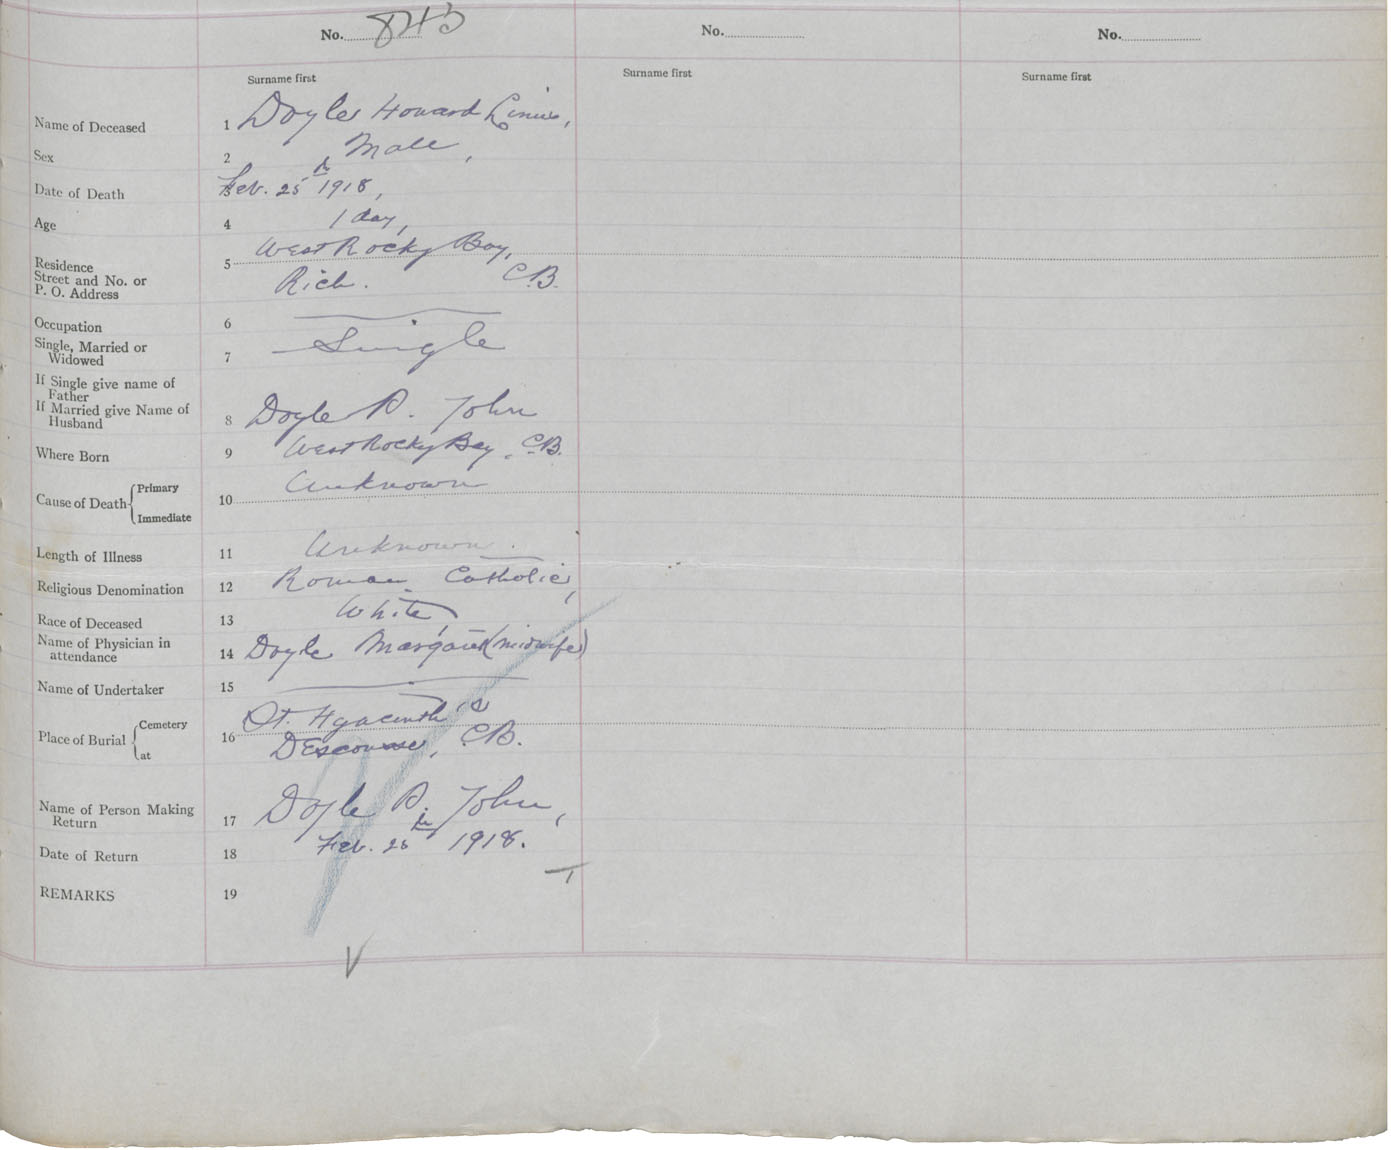 No. 845 No. No.
Surname first Surname first Surname first
Name of Deceased 1 Doyle Howard Linus,
Sex 2 Male,
Date of Death 3 Feb. 25th 1918,
Age 4 1 day,
Residence
Street and No. or
P. O. Address 5 West Rocky Bay,
Rich. C.B.
Occupation 6
Single, Married or
Widowed 7 Single
If Single give name of
Father
If Married give Name of
Husband 8 Doyle P. John
Where Born 9 West Rocky Bay, C.B.
Cause of Death Primary
Immediate 10 Unknown
Length of Illness 11 Unknown.
Religious Denomination 12 Roman Catholic,
Race of Deceased 13 White,
Name of Physician in
attendance 14 Doyle Margaret (midwife)
Name of Undertaker 15
Place of Burial Cemetery
at 16 St. Hyacinth's
DEscousse, C.B.
Name of Person Making
Return 17 Doyle P. John,
Date of Return 18 Feb. 28th 1918.
REMARKS 19